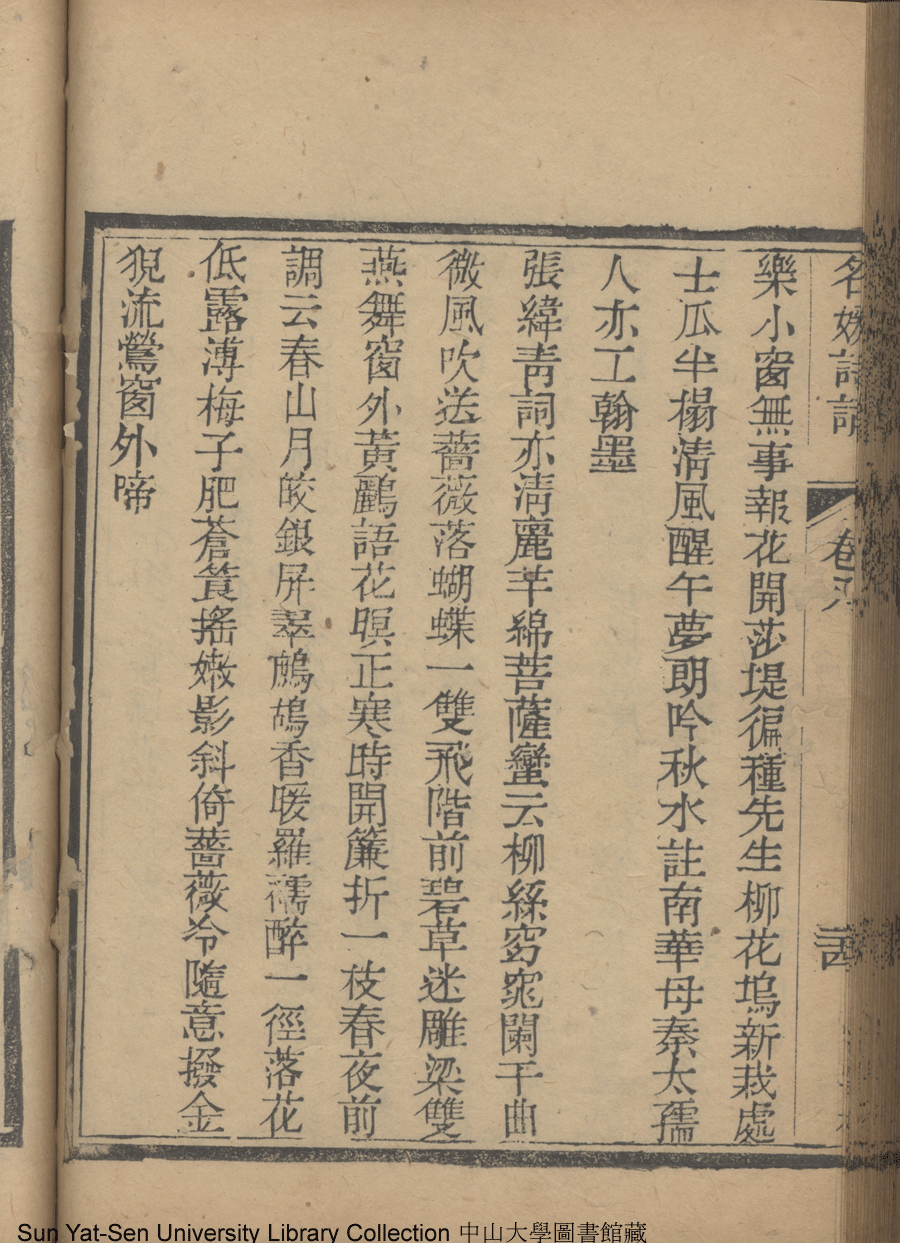 名媛詩話 卷
樂小窗無事報花開莎堤徧種先生柳花塢新栽處
士瓜半榻清風醒午夢朗吟秋水註南華母秦太孺
人亦工翰墨
張緯青詞亦清麗芊綿菩薩蠻云柳絲窈窕闌干曲
微風吹送薔薇落蝴蝶一雙飛階前碧草迷雕梁雙
燕舞窗外黃鸝語花暝正寒時開簾折一枝春夜前
調云春山月皎銀屏翠鷓鴣香暖羅襦醉一徑落花
低露漙梅子肥蒼筤搖嫩影斜倚薔薇冷隨意撥金
猊流鶯窗外啼
Sun Yat-Sen University Library Collection 中山大學圖書館藏